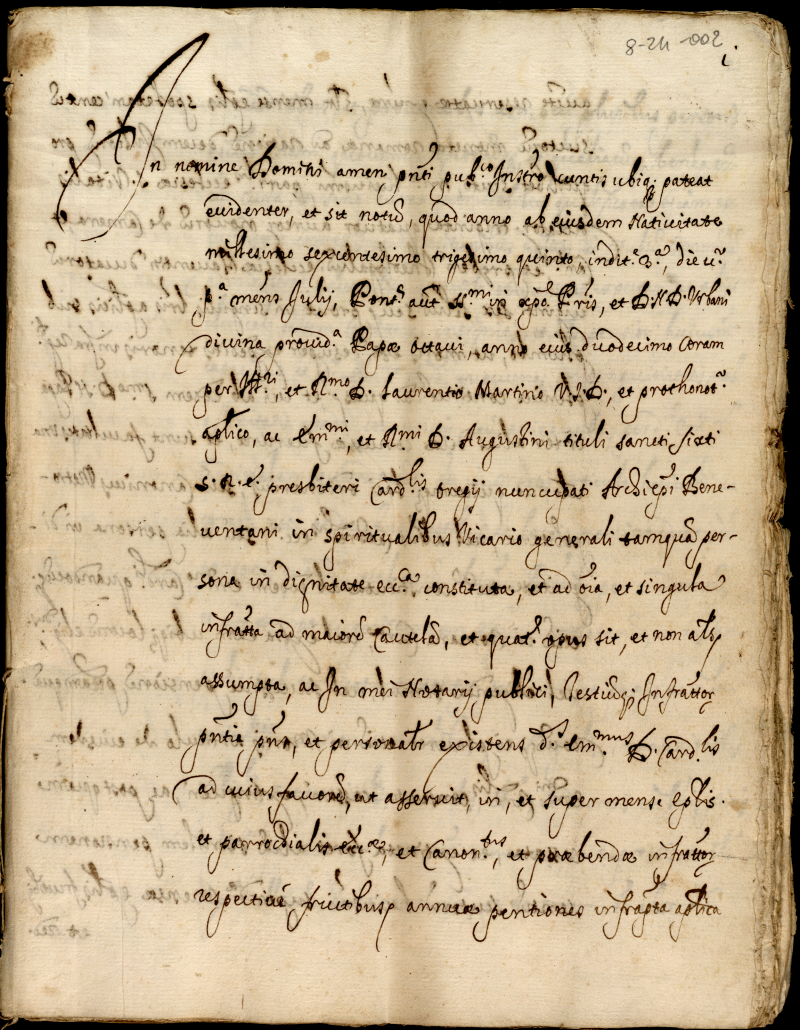 8-24-002
1.
In nomine Domini amen pñti pub.co Instro cunctis ubiq; pateat
evidenter, et sit notũ, quod anno ab eiusdem Nativitate
millesimo sexcentesimo trigesimo quinto, indit.e 3.a, die v.o
p.a mens Julij, Pont.s aũt S.mi in xpõ Pris, et D. N. D. Urbani
divina provid.a Papæ octavi, anno eius duodecimo Coram
per Ill.ri, et R.mo D. Laurentio Martino U. J. D., et prothonot.o
aplico, ac Em.mi, et R.mi D. Augustini tituli sancti Sixti
S. R. E. presbiteri Card.lis Oregij nuncupati Archiepi Bene-
ventani in spiritualibus Vicario generali tamquã per-
sona in dignitate ecc.ca constituta, et ad oĩa, et singula
infratta ad maiorẽ cautelã, et quat.s opus sit, et non als
assumpta, ac In mei Notarij publici, Testiũq; Infrattor
pñtia pñs, et personalr existens d.s Em.mus D. Card.lis
ad cuius favorẽ, ut asseruit, in, et super mensæ Eplis.
et parrochialis ecc.æ, et Canon.tus, et præbendæ infrattor
respectivè fructibus annuæ pentiones infrapta aplica